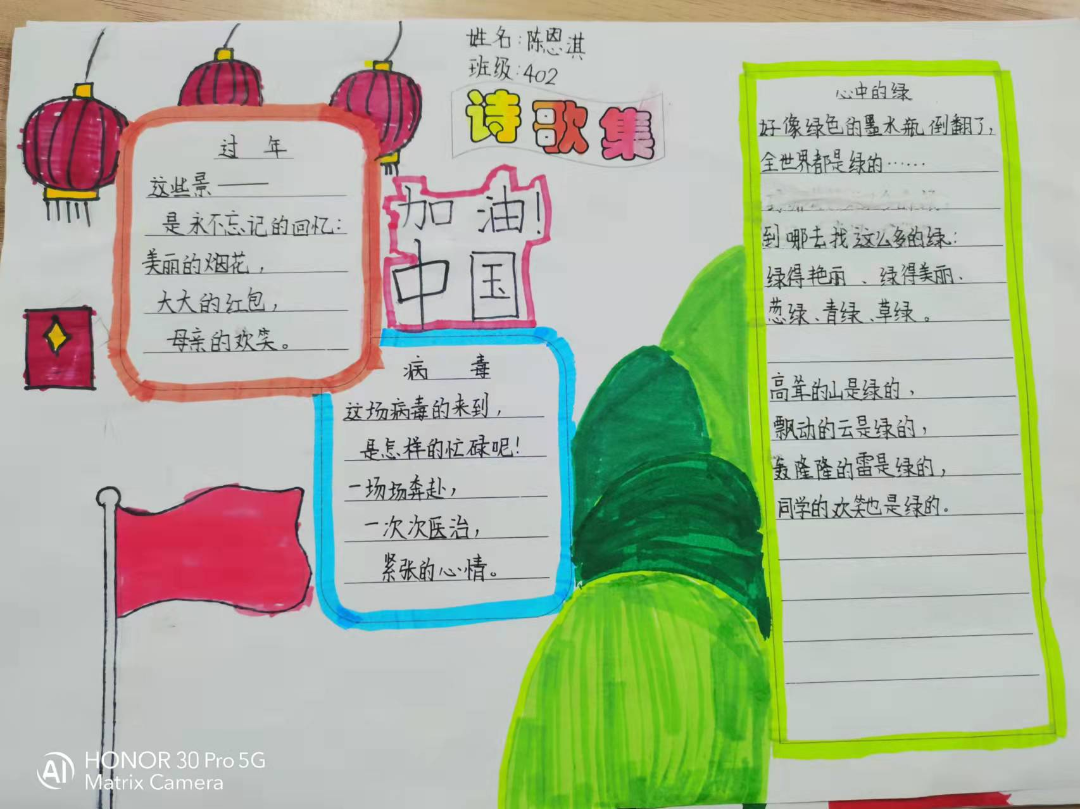 姓名:陈恩淇
班级:402
诗歌集
过年
这些景——
是永不忘记的回忆:
美丽的烟花,
大大的红包,
母亲的欢笑。
加油!
中国
病毒
这场病毒的来到,
是怎样的忙碌呢!
一场场奔赴,
一次次医治,
紧张的心情。
心中的绿
好像绿色的墨水瓶倒翻了,
全世界都是绿的……
到哪去找这么多的绿:
绿得艳丽、绿得美丽、
葱绿、青绿、草绿。
高耸的山是绿的,
飘动的云是绿的,
轰隆隆的雷是绿的,
同学的欢笑也是绿的。
HONOR 30 Pro 5G
Matrix Camera
AI